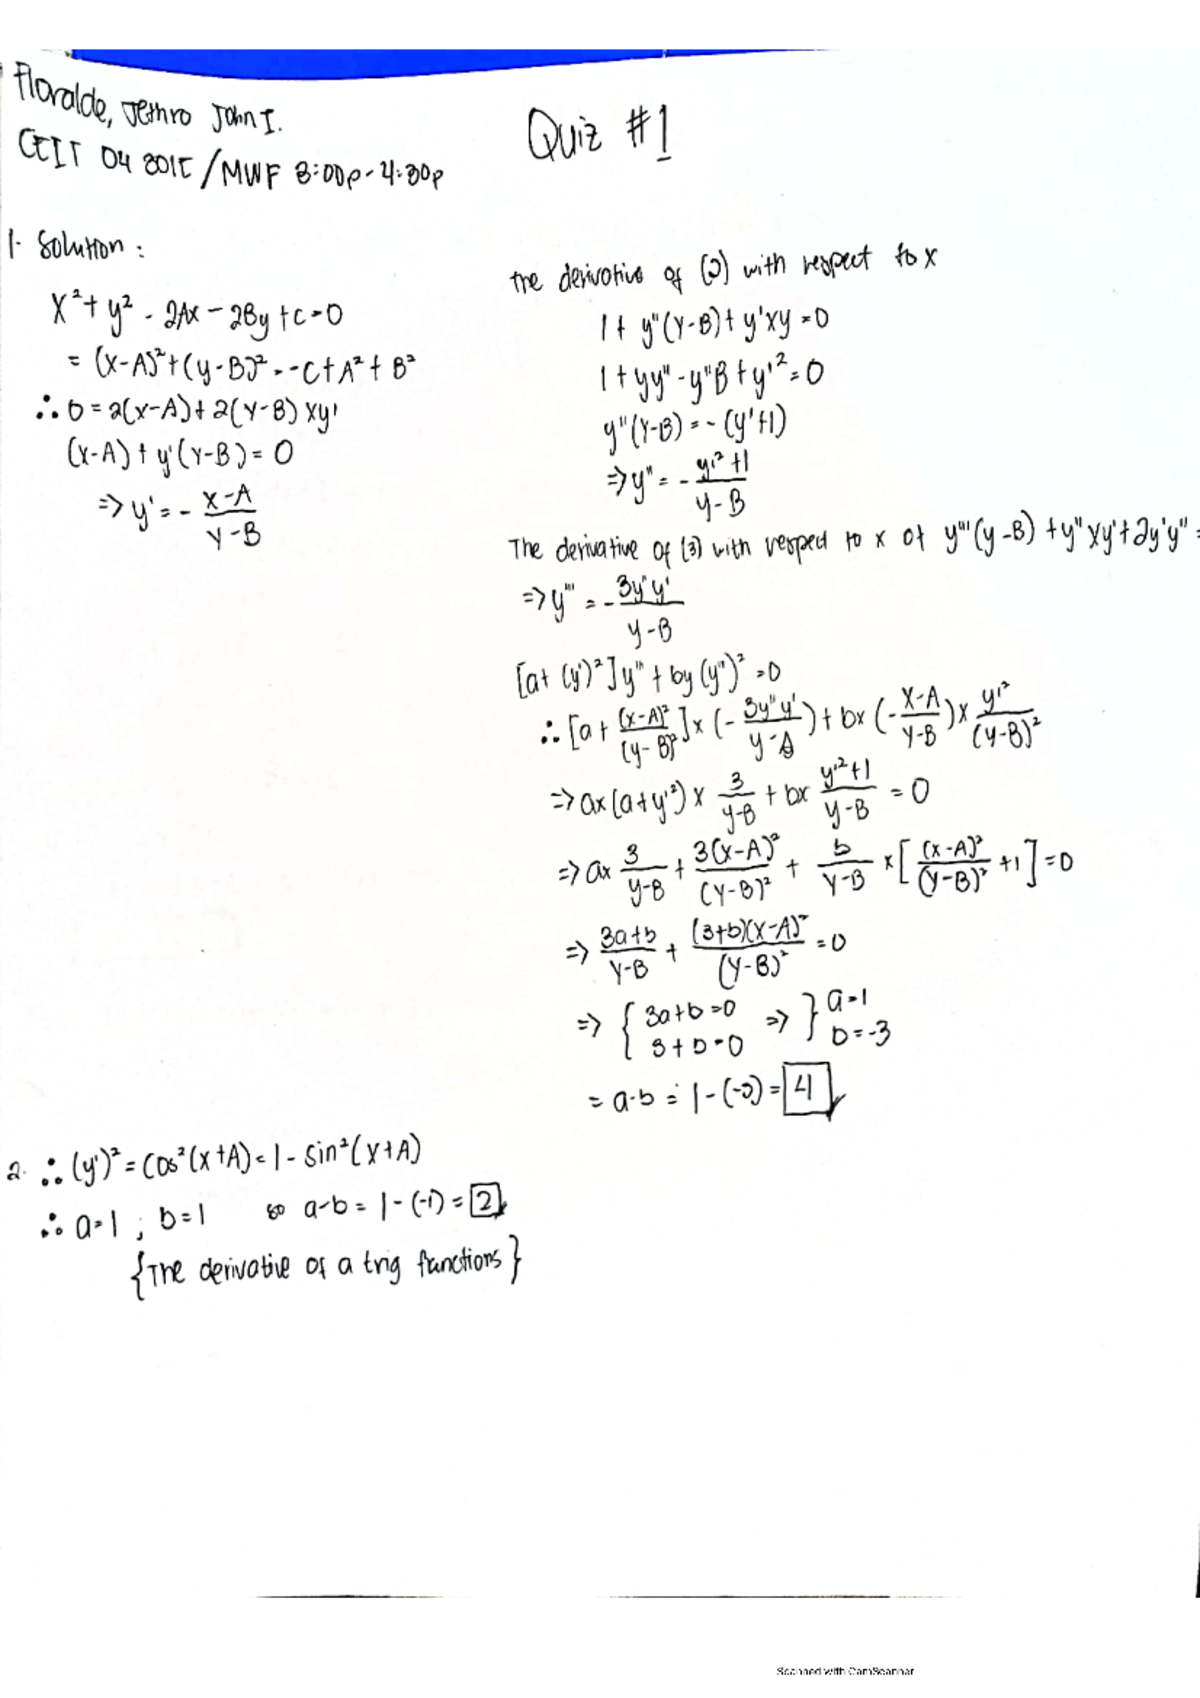 Floralde, Jethro John I.
CEIT 04 801E / MWF 3:00p - 4:30p
Quiz #1
1. Solution :
x² + y² - 2Ax - 2By + c = 0
= (x-A)² + (y-B)² = -c + A² + B²
∴ 0 = 2(x-A) + 2(y-B) xy'
(x-A) + y'(y-B) = 0
=> y' = - (x-A)/(y-B)
the derivative of (2) with respect to x
1 + y''(y-B) + y'xy = 0
1 + yy'' - y''B + y'² = 0
y''(y-B) = - (y'+1)
=> y'' = - (y'²+1)/(y-B)
The derivative of (3) with respect to x of y'''(y-B) + y''xy' + 2y'y'' =
=> y''' = - 3y'y'/(y-B)
[a + (y')²] y''' + by (y'')² = 0
∴ [a + (x-A)²/(y-B)²] x (- 3y''y'/(y-A)) + bx (- (x-A)/(y-B)) x y'²/(y-B)²
=> ax (a+y'²) x 3/(y-B) + bx (y'²+1)/(y-B) = 0
=> ax 3/(y-B) + 3(x-A)²/(y-B)² + b/(y-B) x [(x-A)²/(y-B)² + 1] = 0
=> (3a+b)/(y-B) + (3+b)(x-A)²/(y-B)² = 0
=> { 3a+b=0 => } a=1
3+b=0 b=-3
= a-b = 1-(-3) = 4
2. ∴ (y')² = cos²(x+A) = 1 - sin²(x+A)
∴ a=1 ; b=1 so a-b = 1-(-1) = 2
{The derivative of a trig functions}
Scanned with CamScanner